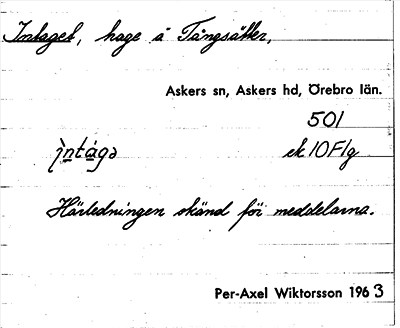 Intaget, hage å Tångsätter,
Askers sn, Askers hd, Örebro län.
501
ìntágə ek 10F1g
Härledningen okänd för meddelarna.
Per-Axel Wiktorsson 1963